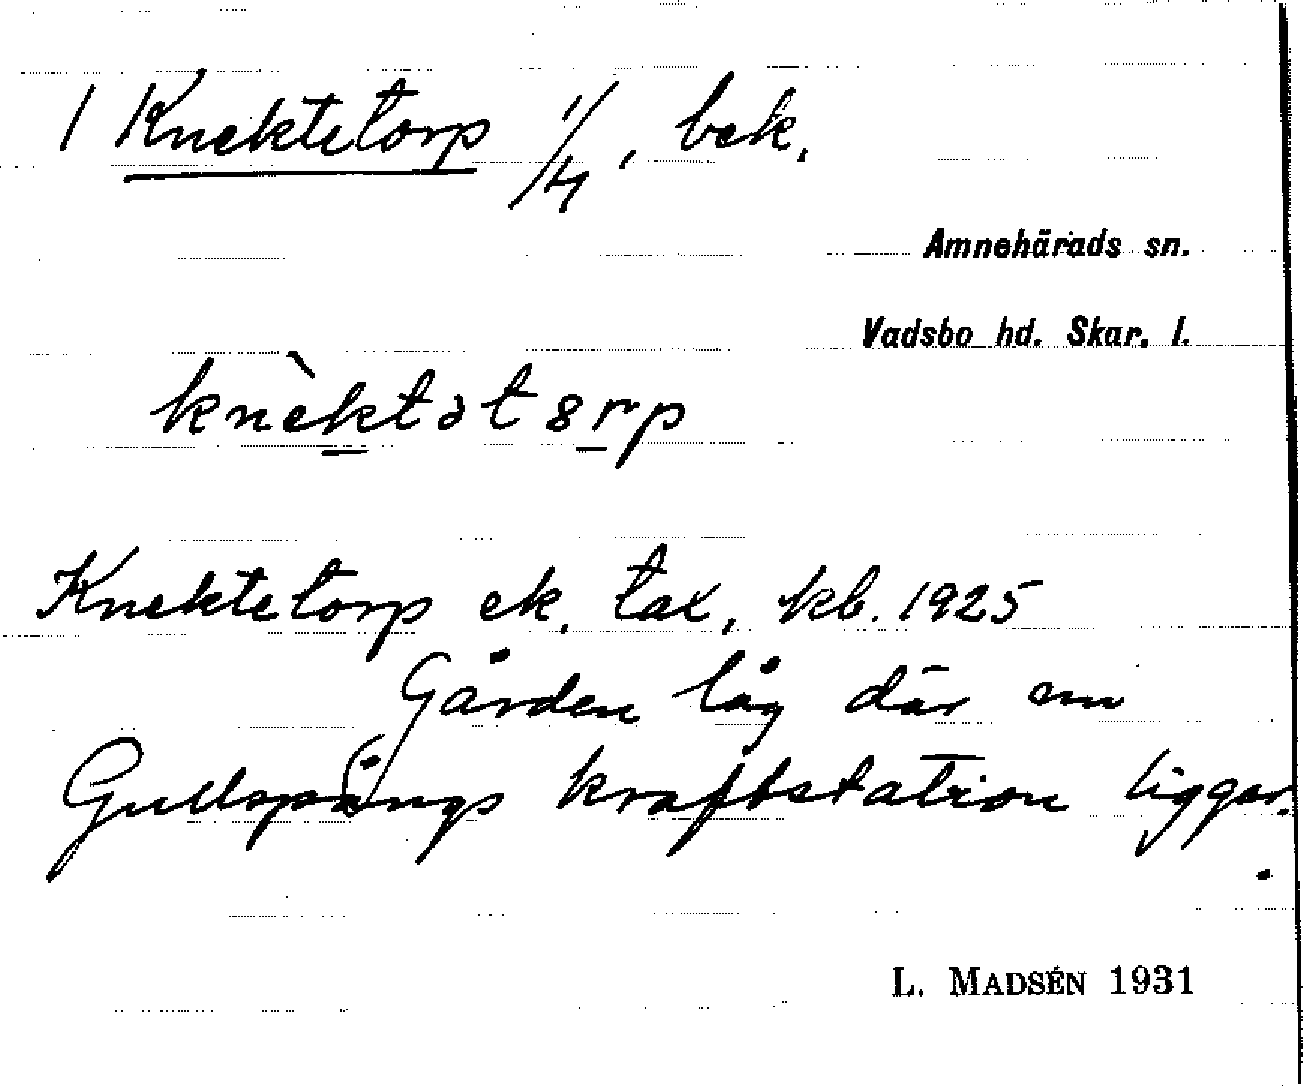 1 Knektetorp 1/4, bek.
Amnehärads sn.
Vadsbo hd. Skar. l.
knὲktətɞrp
Knektetorp ek. tax, kb. 1925
Gården låg där nu
Gullspångs kraftstation ligger.
L. MADSÉN 1931